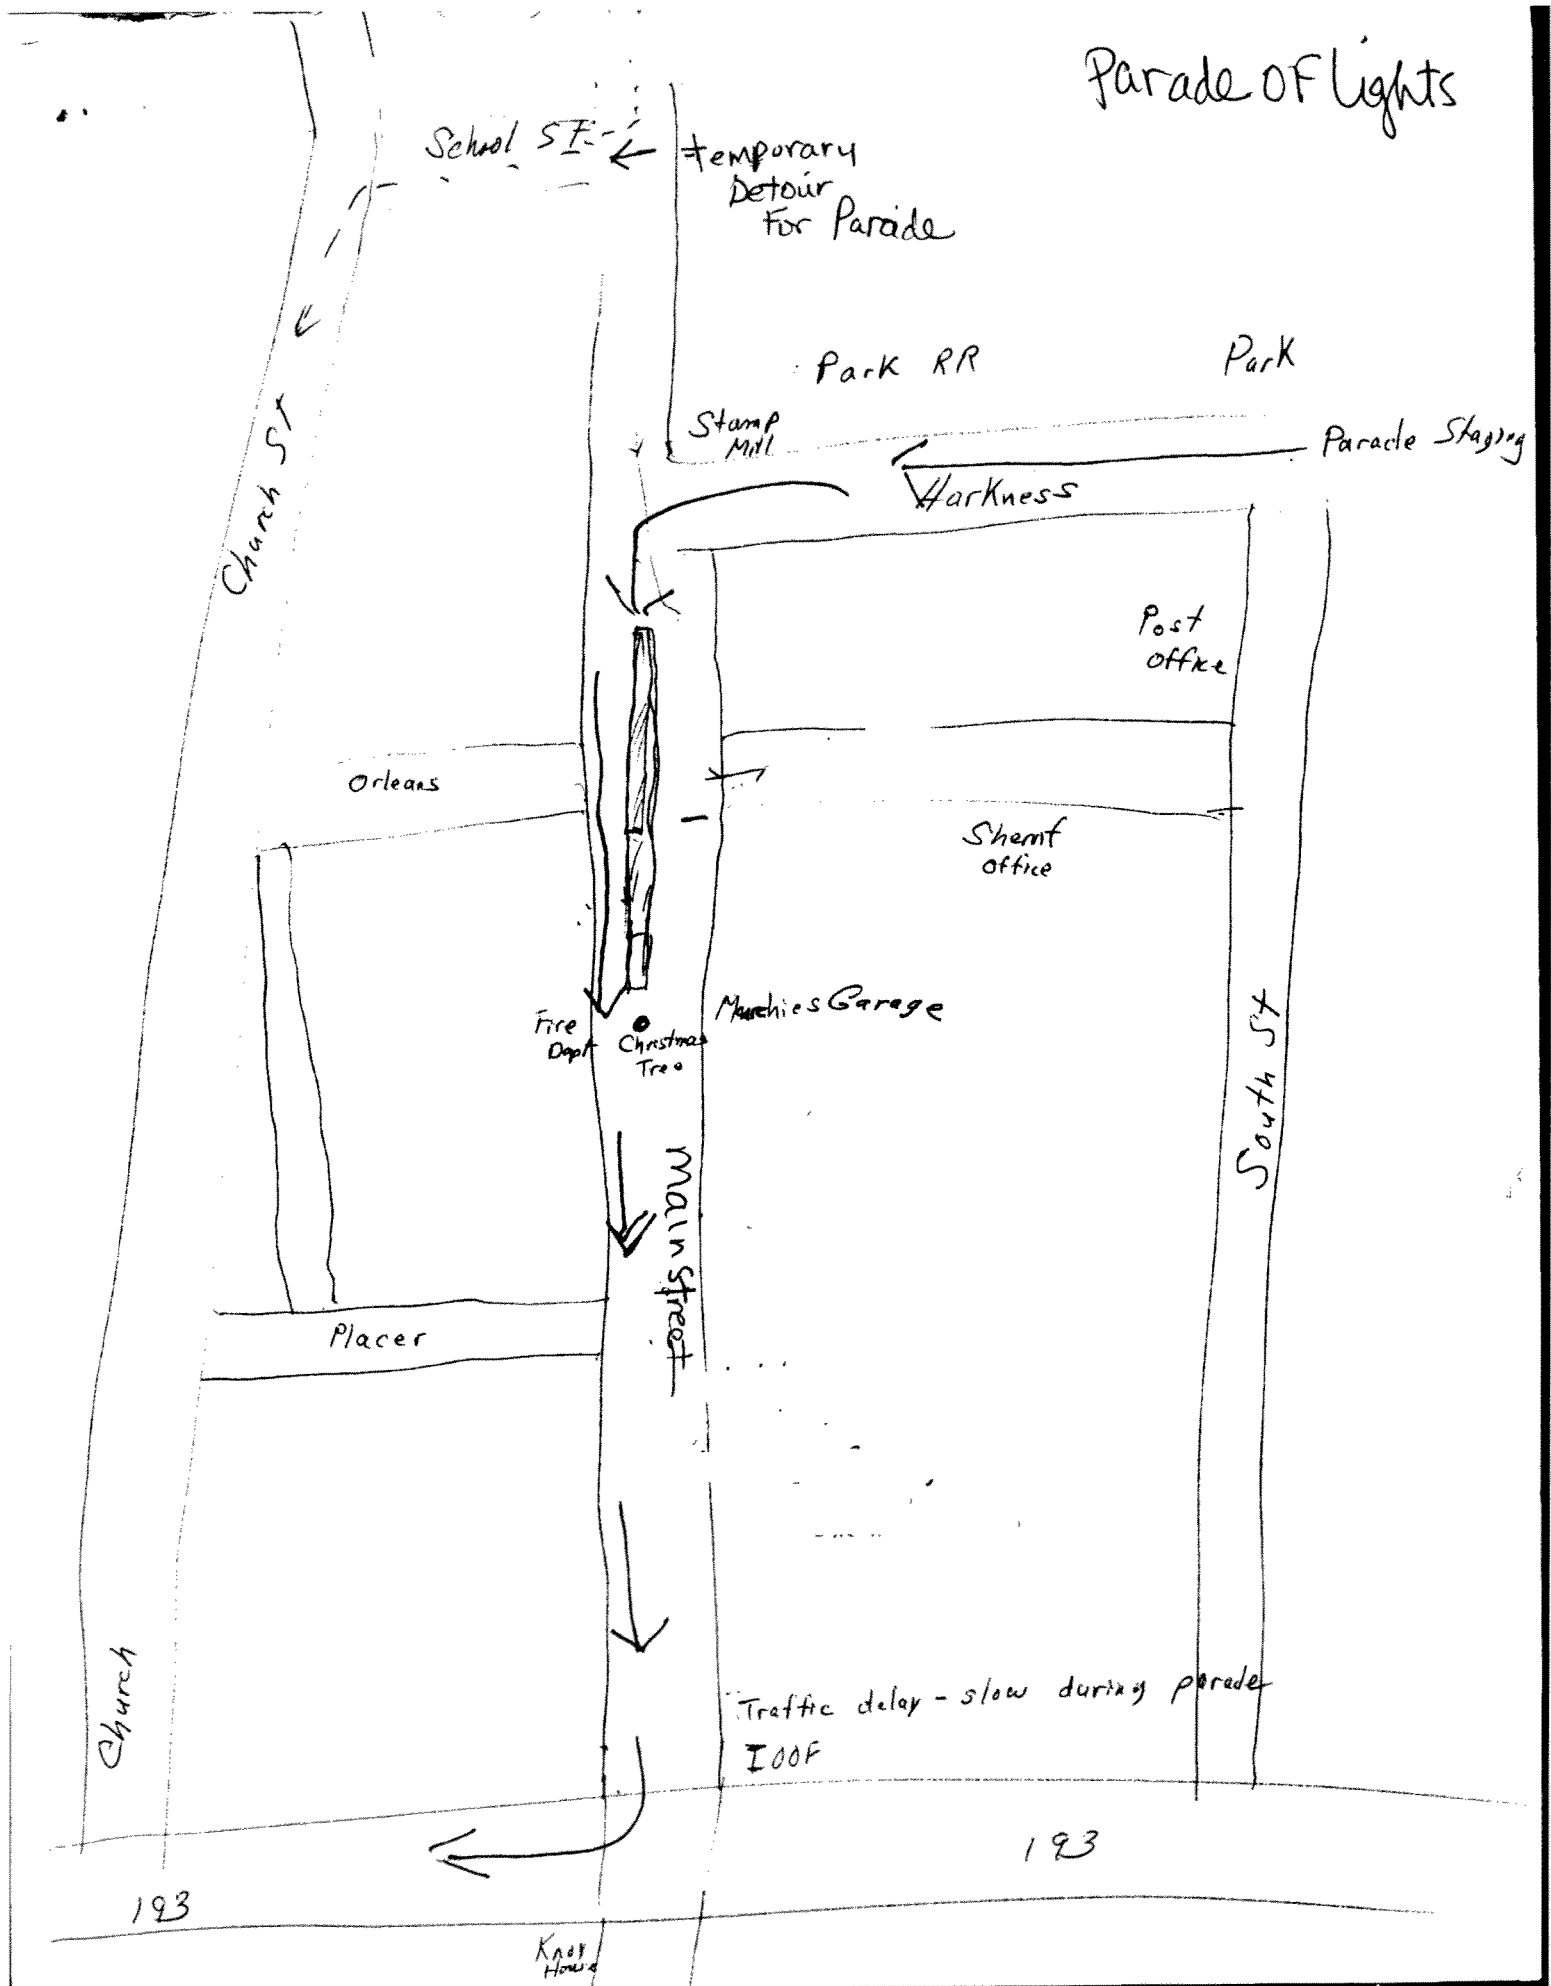 Parade OF Lights
School St
temporary
Detour
For Parade
Park RR
Park
Stamp
Mill
Parade Staging
Harkness
Church St
Post
Office
Orleans
Sheriff
Office
Garage
Fire
Dept
Christmas
Tree
South St
Main Street
Placer
Church
Traffic delay - slow during parade
IOOF
193
193
Knox
House